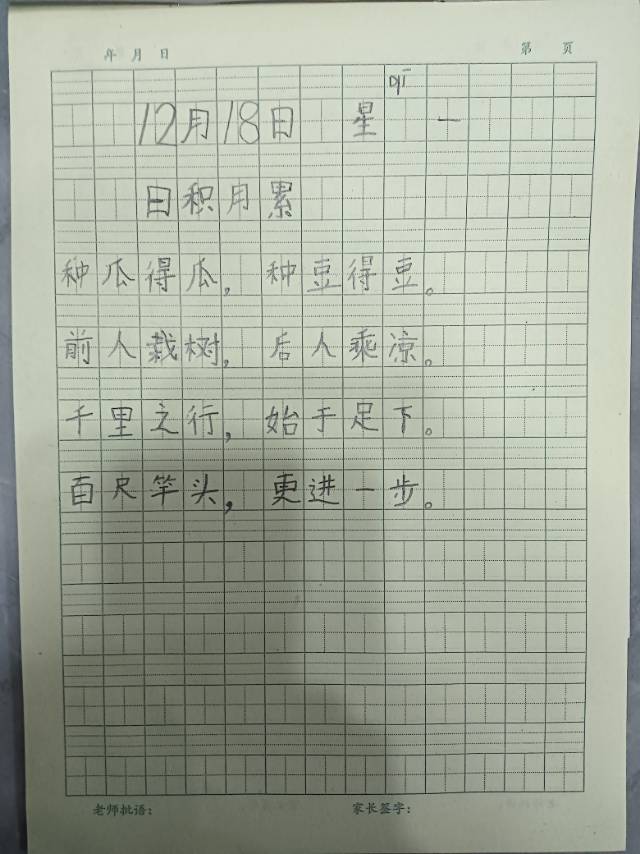 年 月 日 第 页
qī
12月18日 星 一
日积月累
种瓜得瓜，种豆得豆。
前人栽树，后人乘凉。
千里之行，始于足下。
百尺竿头，更进一步。
老师批语： 家长签字：